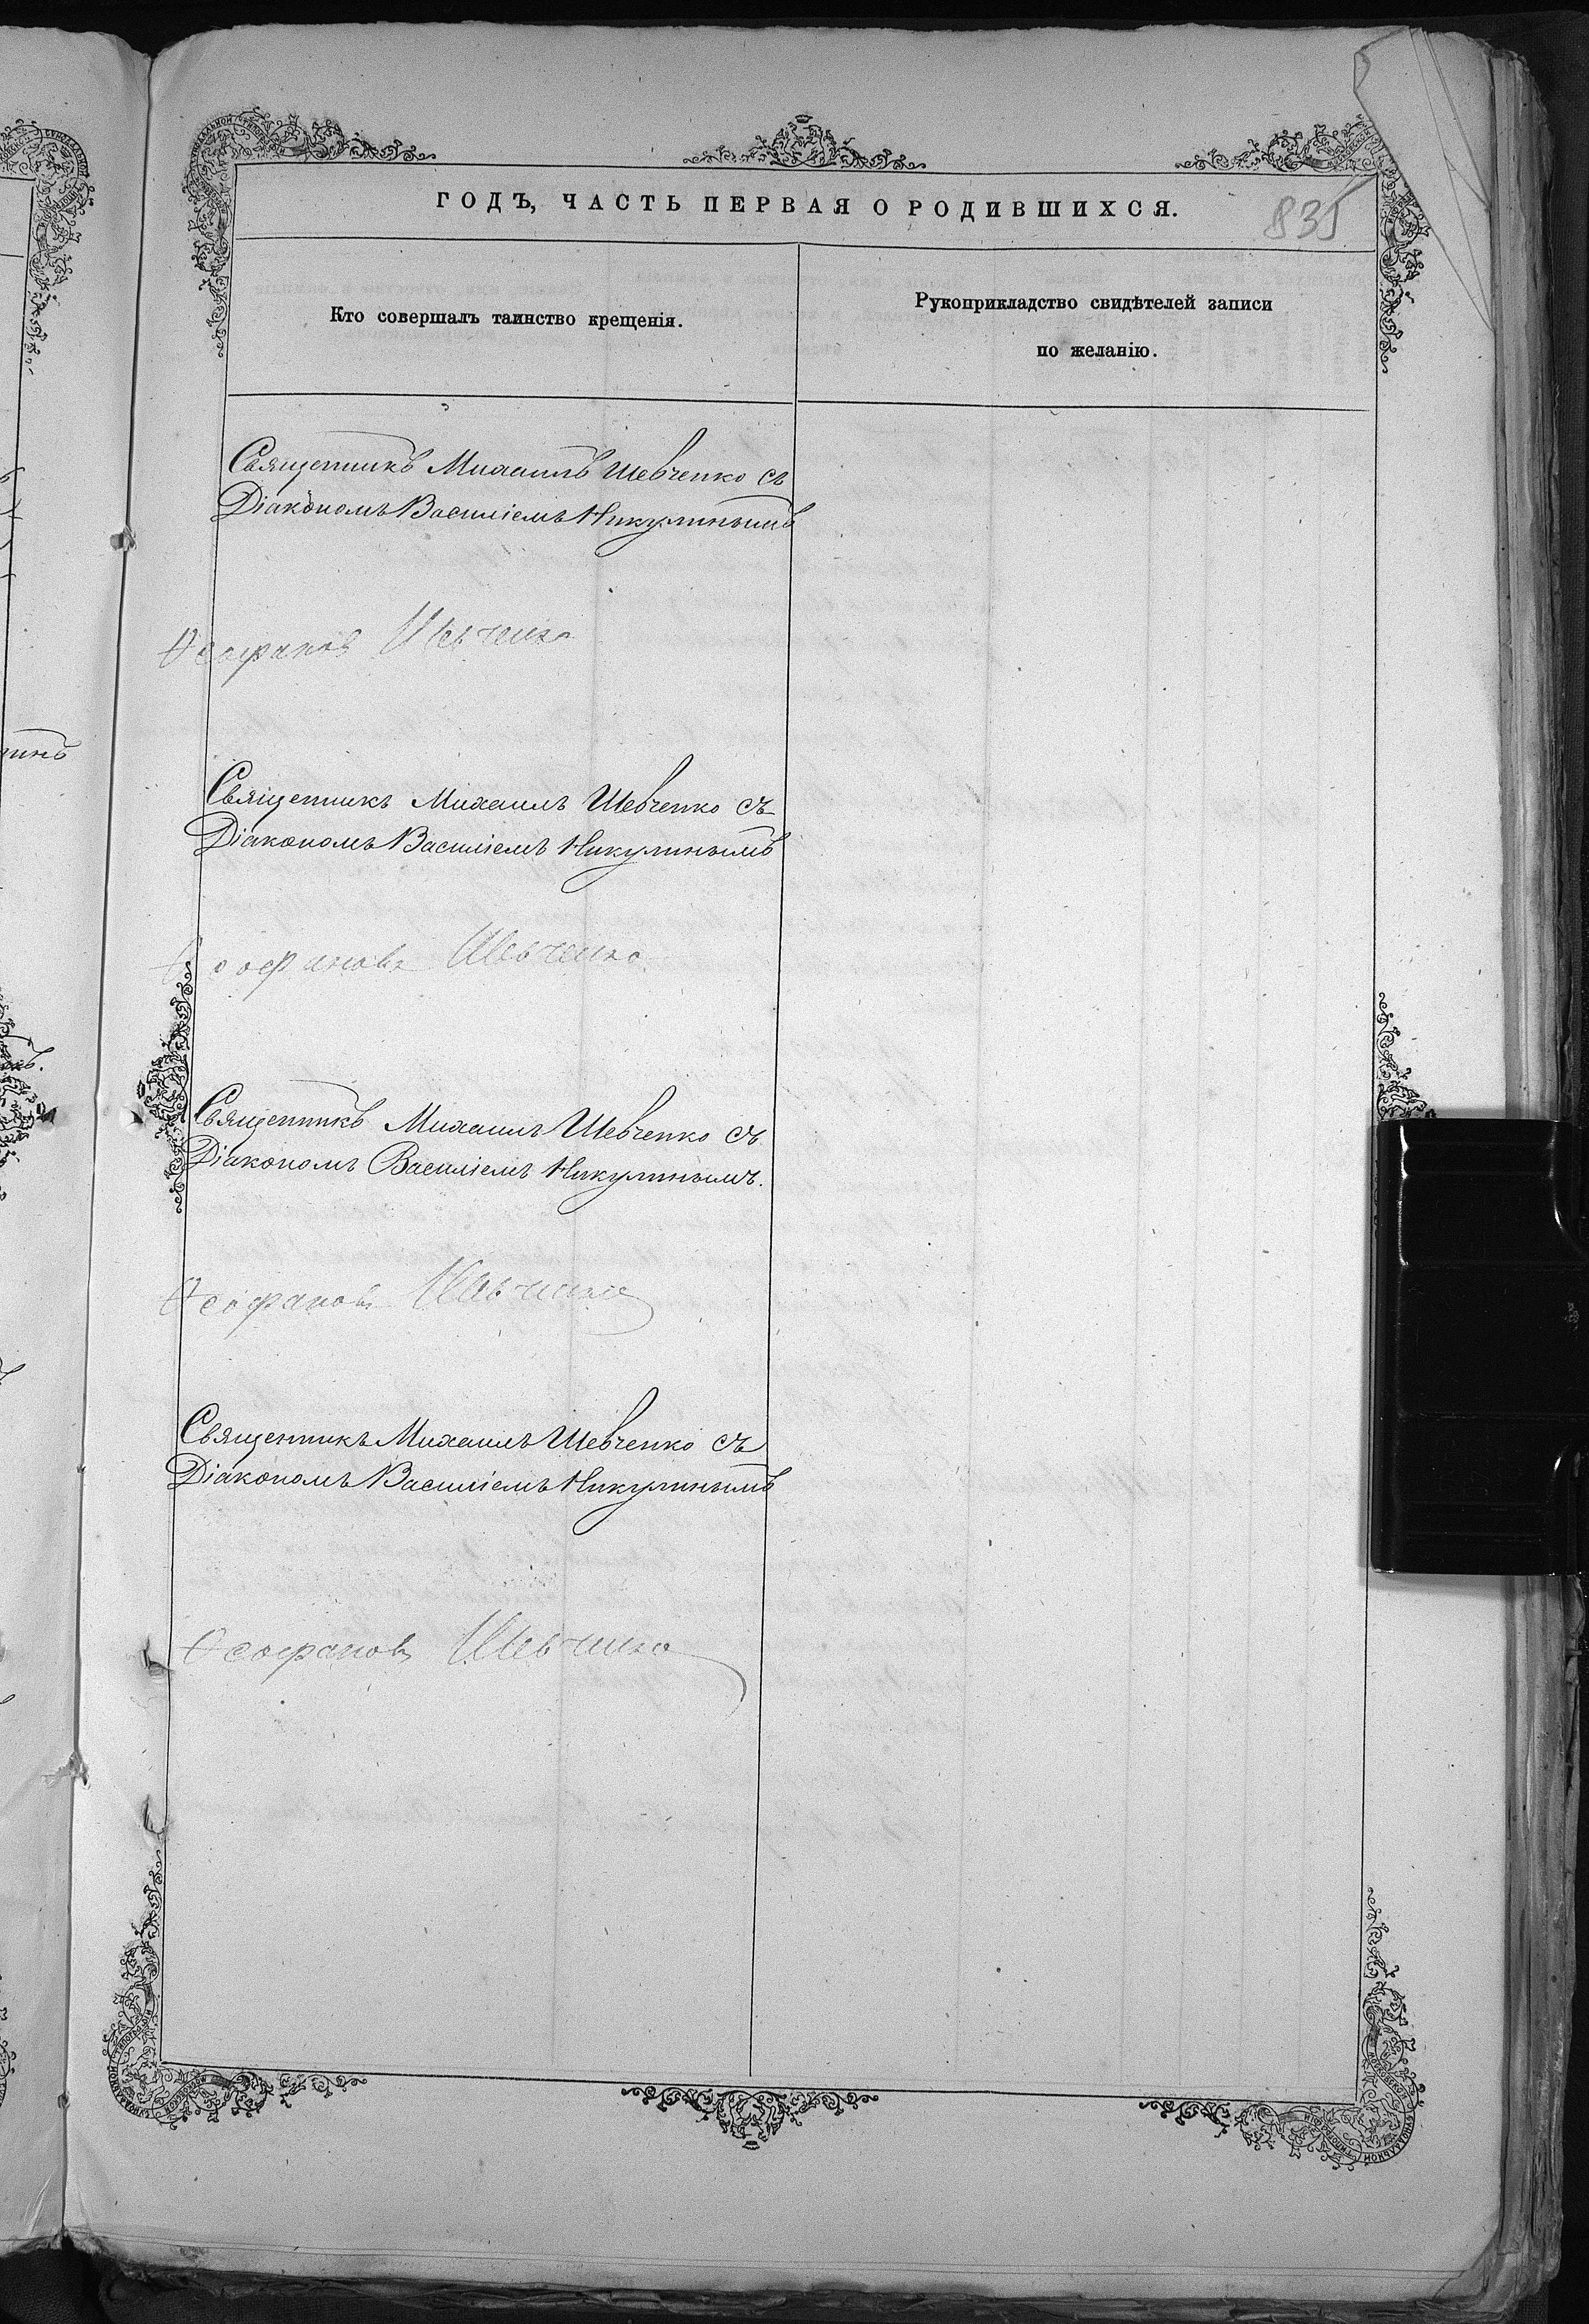 ГОДЪ, ЧАСТЬ ПЕРВАЯ О РОДИВШИХСЯ.
835
Кто совершалъ таинство крещенія.
Рукоприкладство свидѣтелей записи
по желанію.
Священникъ Михаилъ Шевченко съ
Діакономъ Василіемъ Никулинымъ
Ѳеофановъ Шевченко
Священникъ Михаилъ Шевченко съ
Діакономъ Василіемъ Никулинымъ
Ѳеофановъ Шевченко
Священникъ Михаилъ Шевченко съ
Діакономъ Василіемъ Никулинымъ.
Ѳеофановъ Шевченко
Священникъ Михаилъ Шевченко съ
Діакономъ Василіемъ Никулинымъ
Ѳеофановъ Шевченко